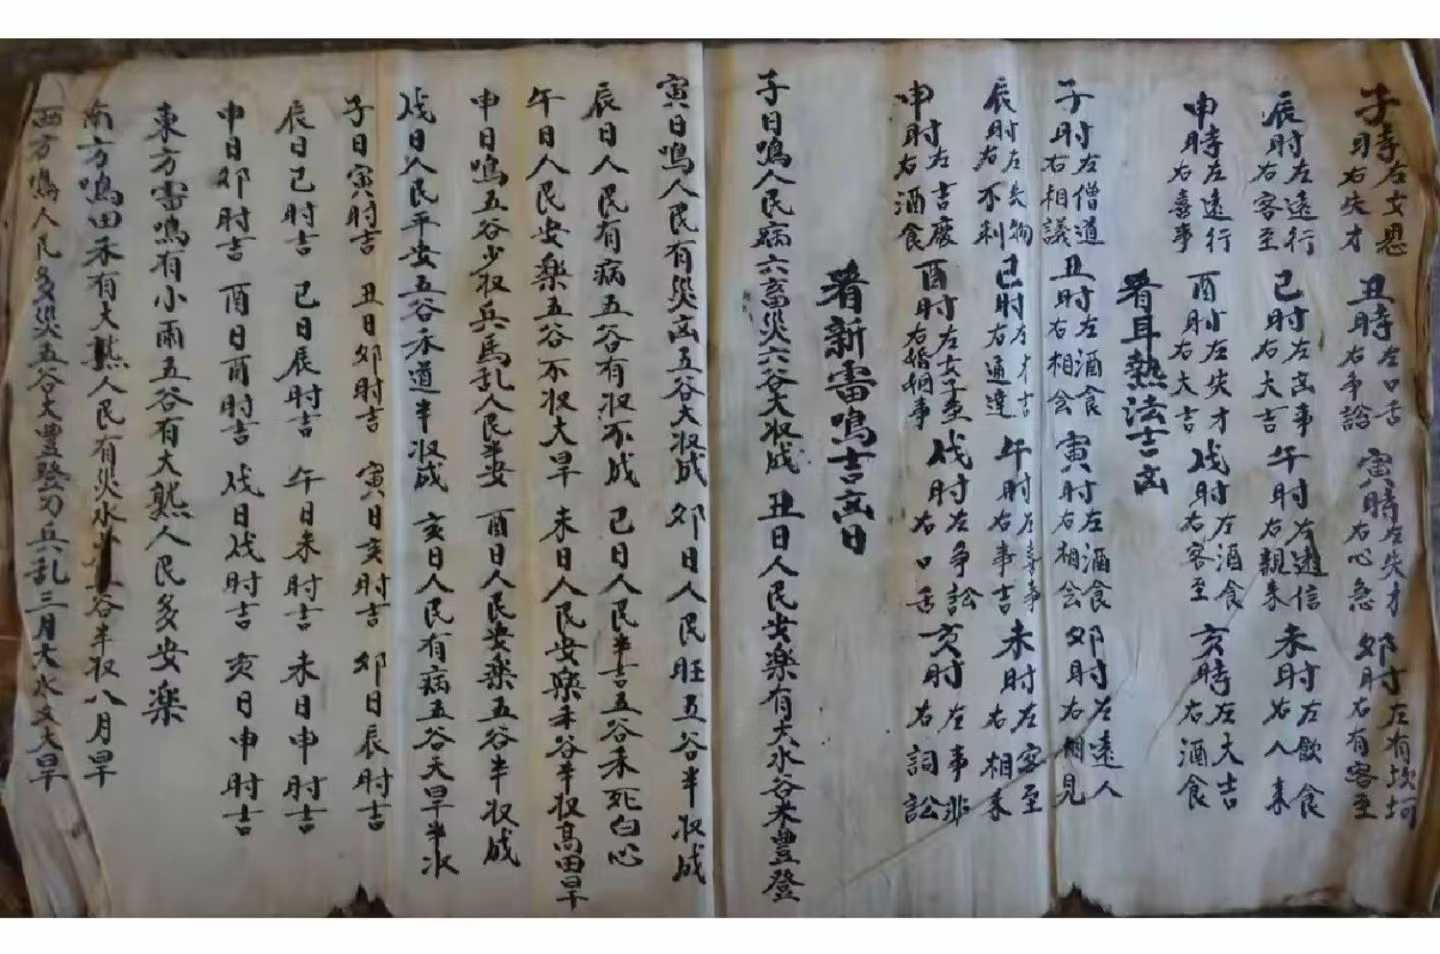 子時左女思右失才 丑時左口舌右争訟 寅時左失才右心急 卯时左有坎坷右有客至
辰时左遠行右客至 巳时左凶事右大吉 午时左遠信右親来 未时左飲食右人来
申時左遠行右喜事 酉时左失才右大吉 戌时左酒食右客至 亥時左大吉右酒食
看耳熱法吉凶
子时左僧道右相議 丑时左酒食右相会 寅时左酒食右相会 卯时左遠人右相見
辰时左失物右不利 巳时左才吉右通達 午时左喜事右事吉 未时左客至右相来
申时左吉慶右酒食 酉时左女子至右婚姻事 戌时左争訟右口舌 亥时左事非右詞訟
看新雷鳴吉凶日
子日鳴人民病六畜災六谷大収成 丑日人民安楽有大水谷米豊登
寅日鳴人民有災凶五谷大収成 卯日人民旺五谷半収成
辰日人民有病五谷有収不成 巳日人民半吉五谷禾死白心
午日人民安楽五谷不収大旱 未日人民安楽禾谷半収高田旱
申日鳴五谷少収兵馬乱人民半安 酉日人民安楽五谷半収成
戌日人民平安五谷禾道半収成 亥日人民有病五谷天旱半水
子日寅时吉 丑日卯时吉 寅日亥时吉 卯日辰时吉
辰日巳时吉 巳日辰时吉 午日未时吉 未日申时吉
申日卯时吉 酉日酉时吉 戌日戌时吉 亥日申时吉
東方雷鳴有小雨五谷有大熟人民多安楽
南方鳴田禾有大熟人民有災水五谷半収八月旱
西方鳴人民多災五谷大豊登刀兵乱三月大水又大旱